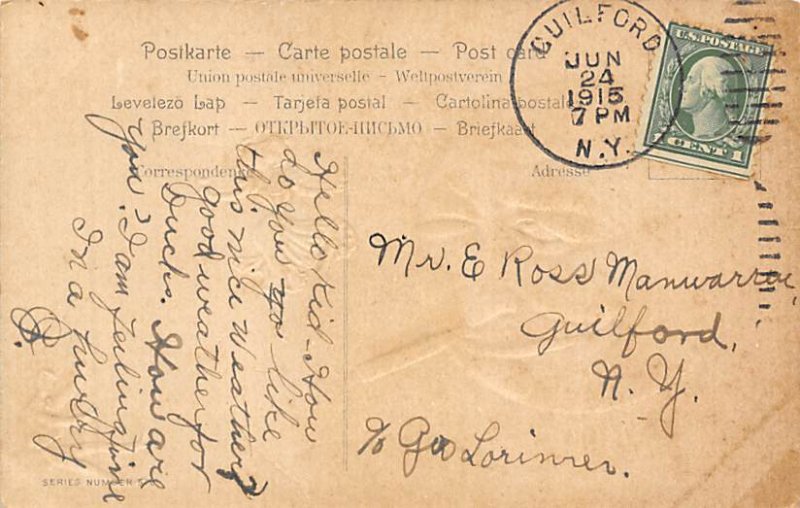 Postkarte — Carte postale — Post card
Union postale universelle — Weltpostverein
Levelező Lap — Tarjeta postal — Cartolina postale
Brefkort — ОТКРЫТОЕ-ПИСЬМО — Briefkaart
Correspondenke
Adresse
GUILFORD
JUN
24
1915
7 PM
N.Y.
U.S. POSTAGE
1 CENT 1
Hello Kid-How
do you go like
this nice weather?
good weather for
Ducks. How are
you? I am feeling fine
In a hurry
Mr. E Ross Manwarren
Guilford,
N. Y.
c/o Geo Lorimer.
SERIES NUMBER